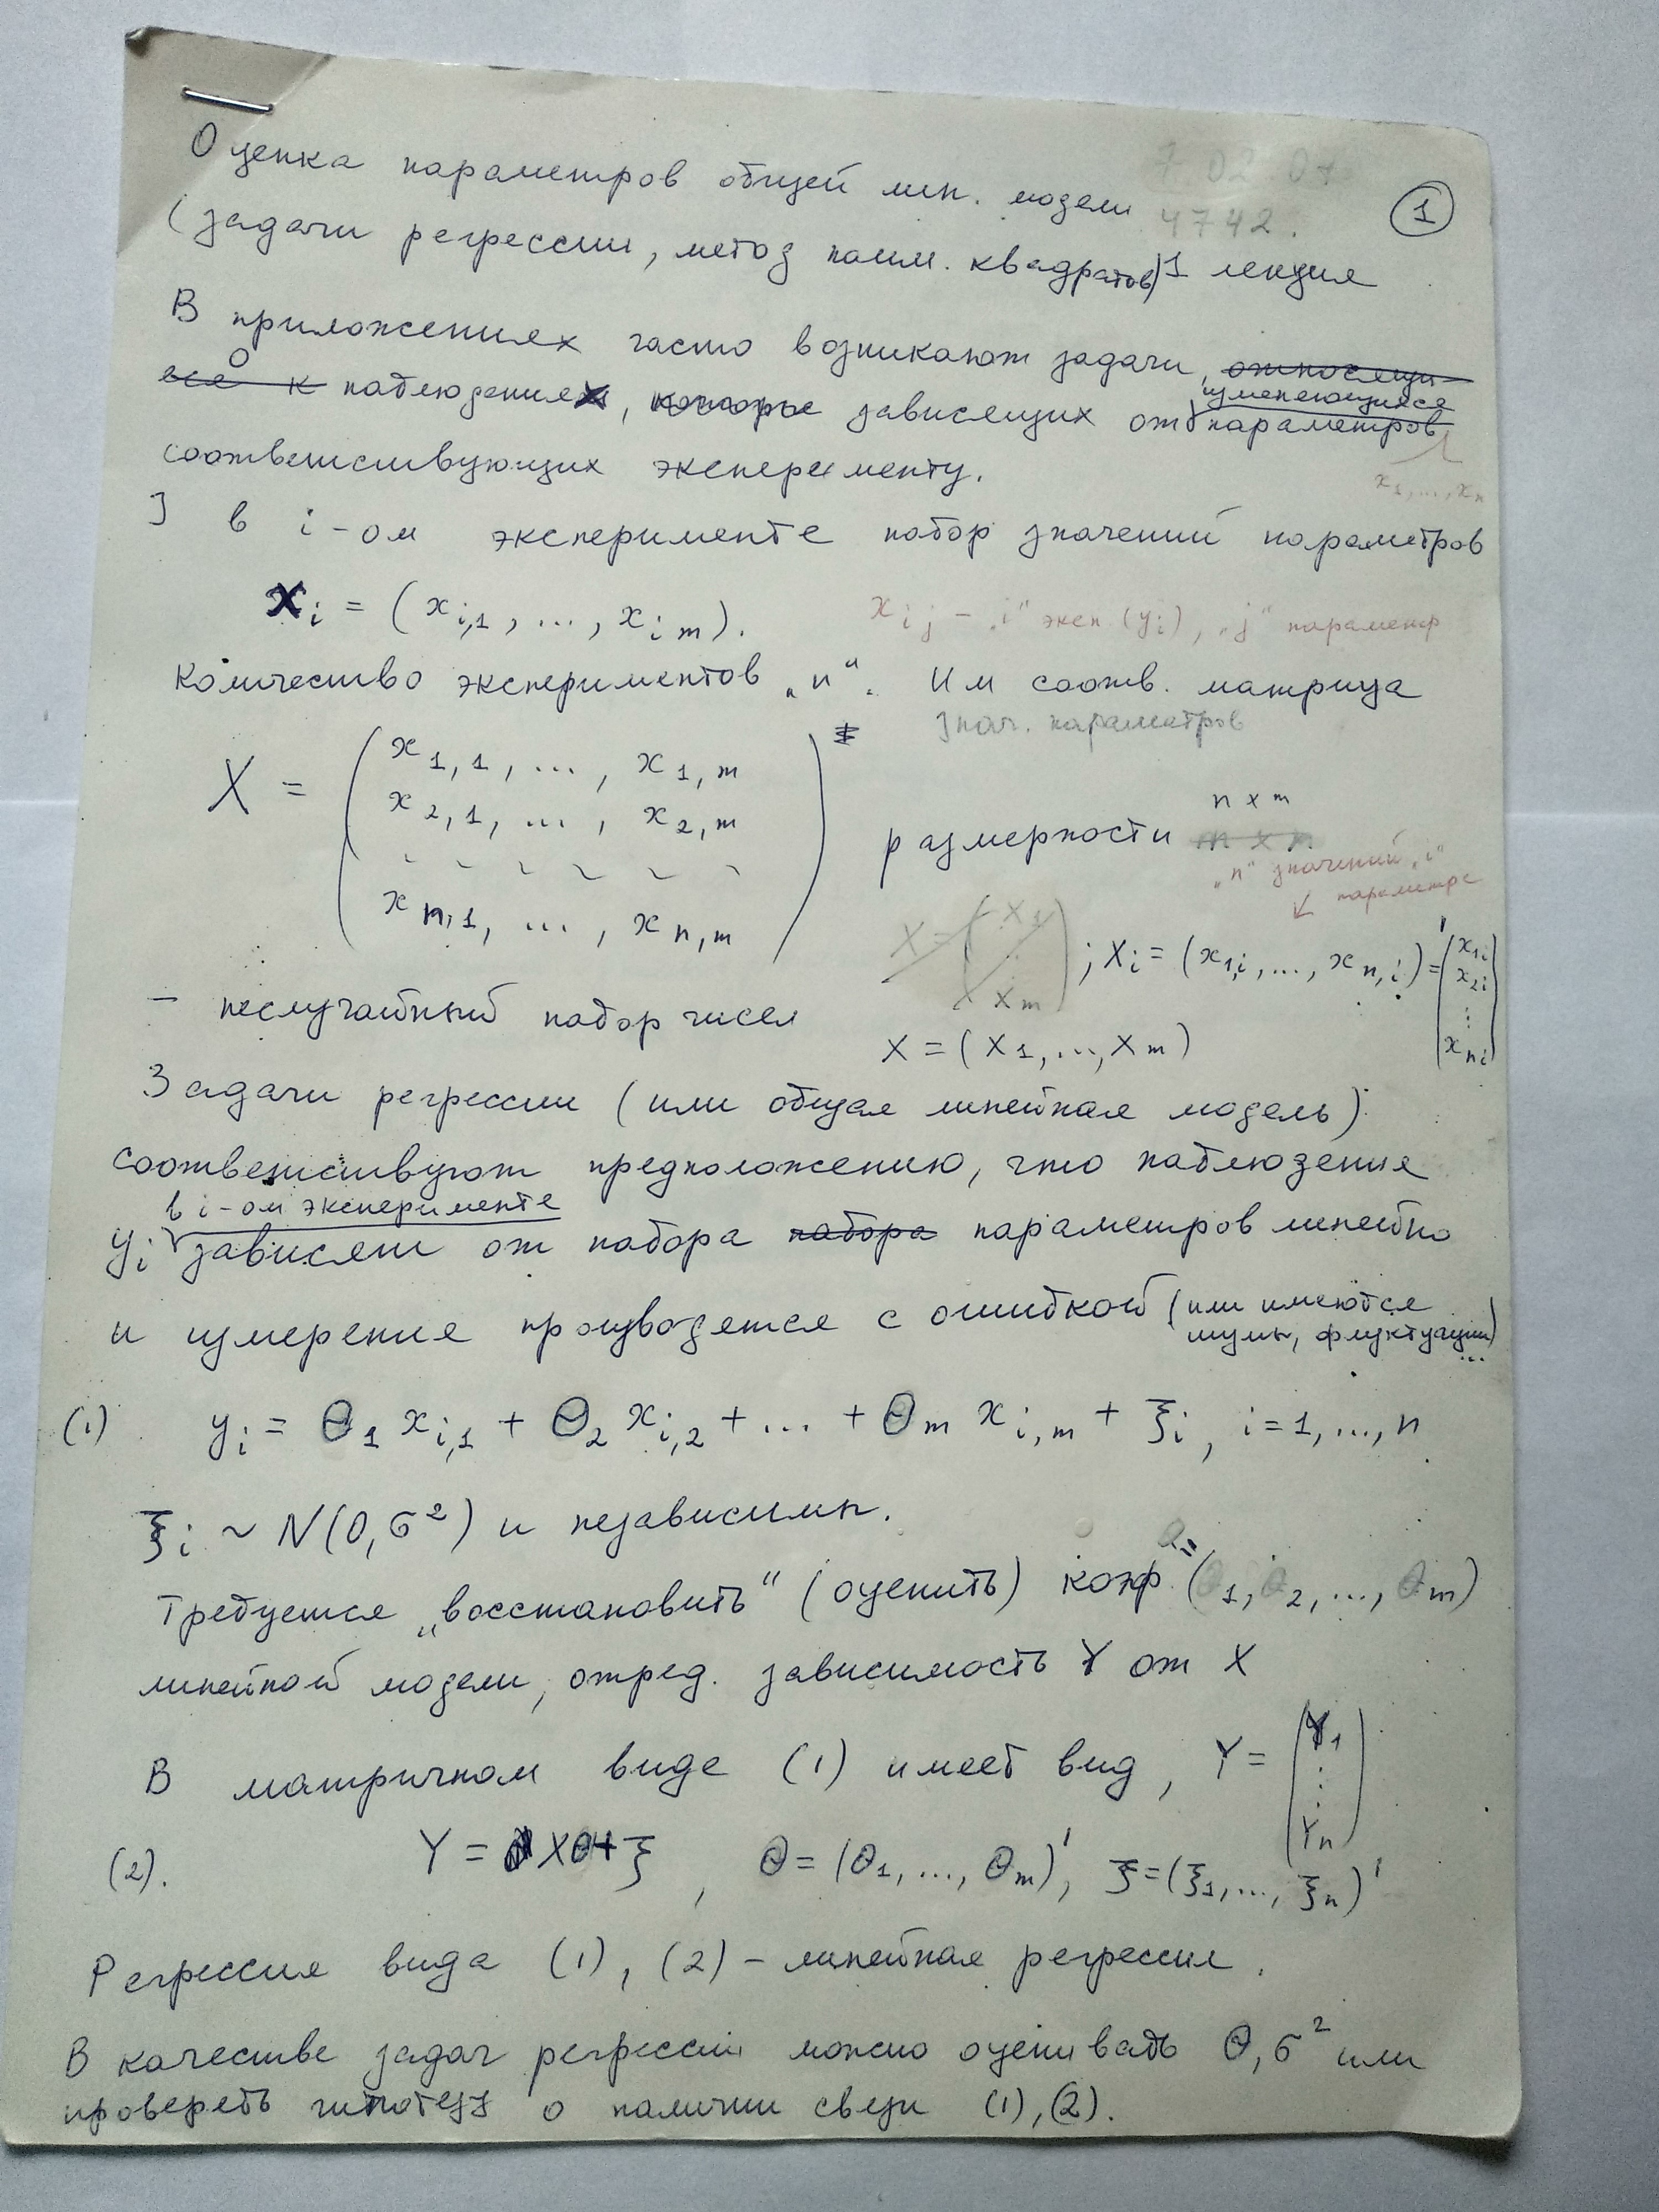 Оценка параметров общей лин. модели
7 02 04
4742.
①
(задачи регрессии, метод наим. квадратов) 1 лекция
В приложениях часто возникают задачи, относящи-
еся к о наблюдениях, которые зависящих от изменяющихся параметров,
x₁, ..., xₙ
соответствующих эксперименту.
] в i-ом эксперименте набор значений параметров
Xᵢ = (xᵢ,₁, ..., xᵢ ₘ).
xᵢ ⱼ – „i“ эксп (yᵢ), „j“ параметр
Количество экспериментов „n“. Им соотв. матрица
знач. параметров
X = ( x₁,₁, ..., x₁,ₘ
x₂,₁, ..., x₂,ₘ
xₙ,₁, ..., xₙ,ₘ )
размерности n x m
„n“ значений „i“
параметра
X = ( X₁ ⋮ Xₘ ) ; Xᵢ = (x₁,ᵢ, ..., xₙ,ᵢ)' = ( x₁ᵢ x₂ᵢ ⋮ xₙᵢ )
– неслучайный набор чисел
X = (X₁, ..., Xₘ)
Задачи регрессии (или общая линейная модель)
соответствуют предположению, что наблюдения
в i-ом эксперименте
yᵢ зависят от набора набора параметров линейно
и измерение производится с ошибкой (или имеются
шумы, флуктуации) ...
(1) yᵢ = θ₁ xᵢ,₁ + θ₂ xᵢ,₂ + ... + θₘ xᵢ,ₘ + ξᵢ, i = 1, ..., n
ξᵢ ~ N(0, σ²) и независимы.
Требуется „восстановить“ (оценить) коэф. (θ₁, θ₂, ..., θₘ)
линейной модели, опред. зависимость Y от X
В матричном виде (1) имеет вид, Y = ( Y₁ ⋮ Yₙ )
(2). Y = Xθ + ξ, θ = (θ₁, ..., θₘ)', ξ = (ξ₁, ..., ξₙ)'
Регрессия вида (1), (2) – линейная регрессия.
В качестве задач регрессии можно оценивать θ, σ² или
проверять гипотезу о наличии связи (1), (2).